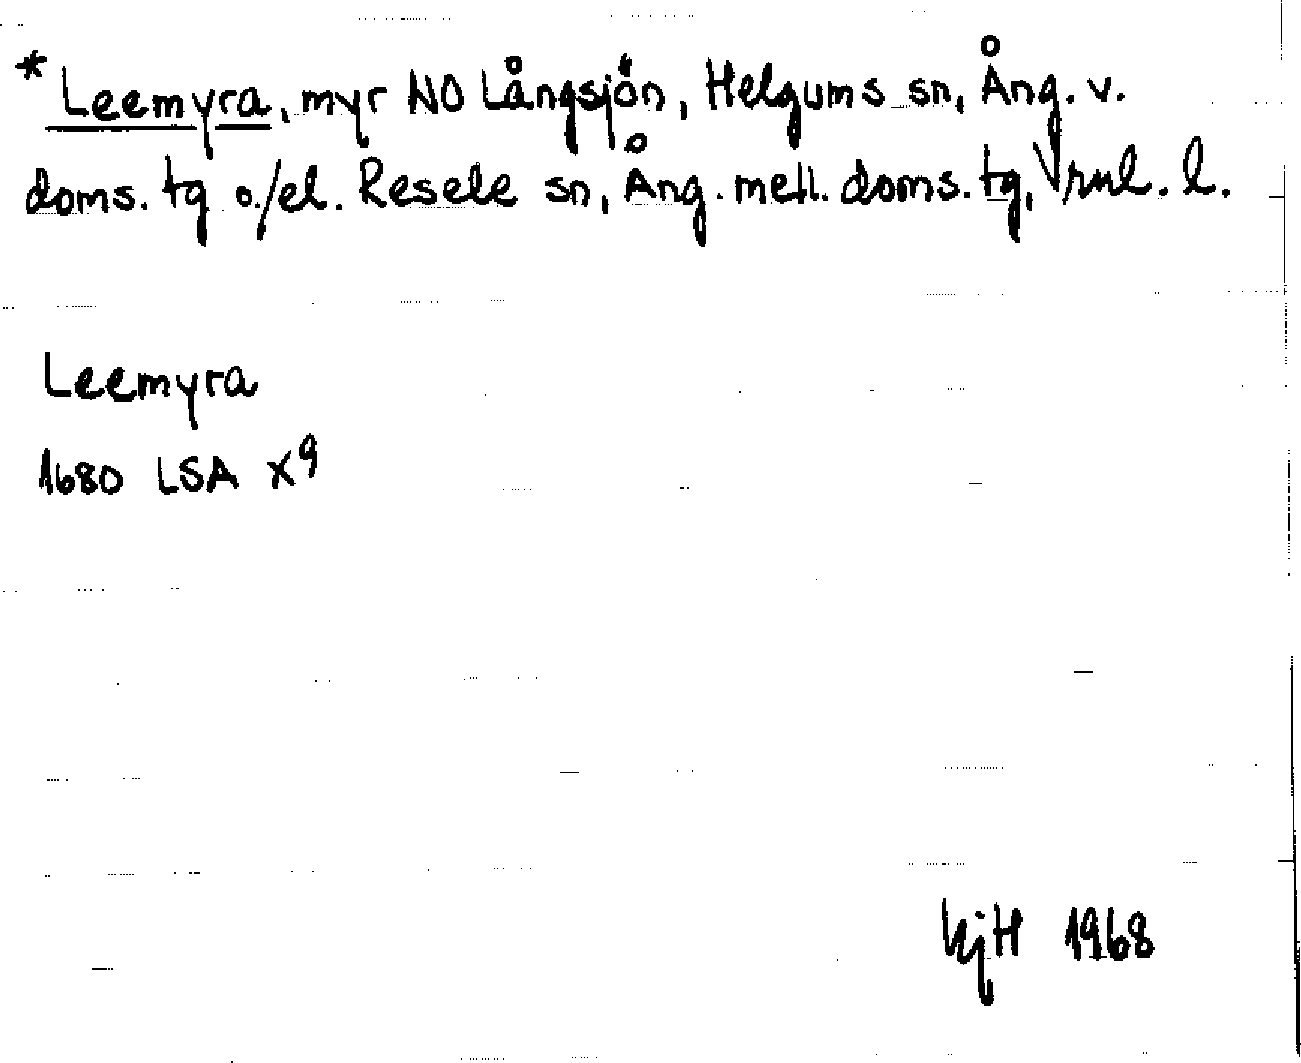 *Leemyra, myr NO Långsjön, Helgums sn, Ång. v.
doms. tg o./el. Resele sn, Ång. mell. doms. tg, Vrnl. l.
Leemyra
1680 LSA X9
1968